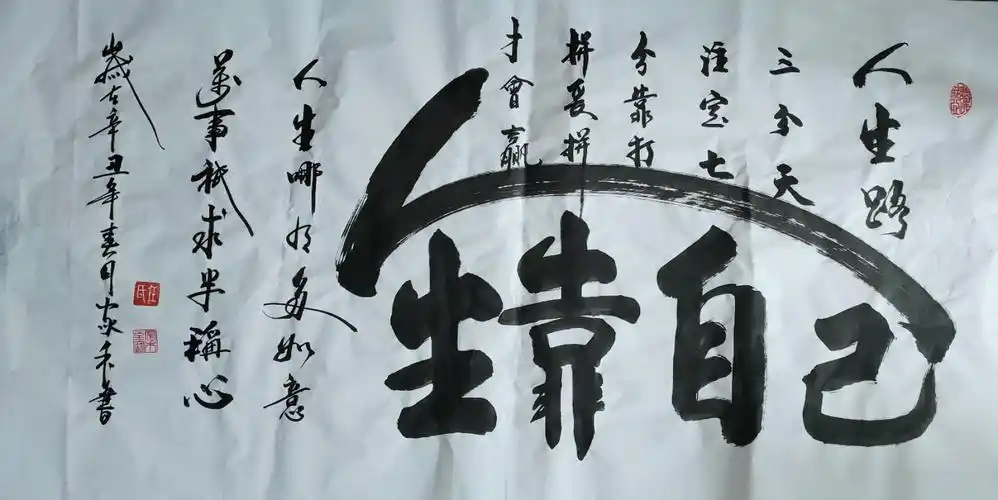 人生路
三分天
注定七
分靠打
拼爱拼
才會贏
人生靠自己
人生哪有多如意
萬事祇求半稱心
歲在辛丑年春月家禾書